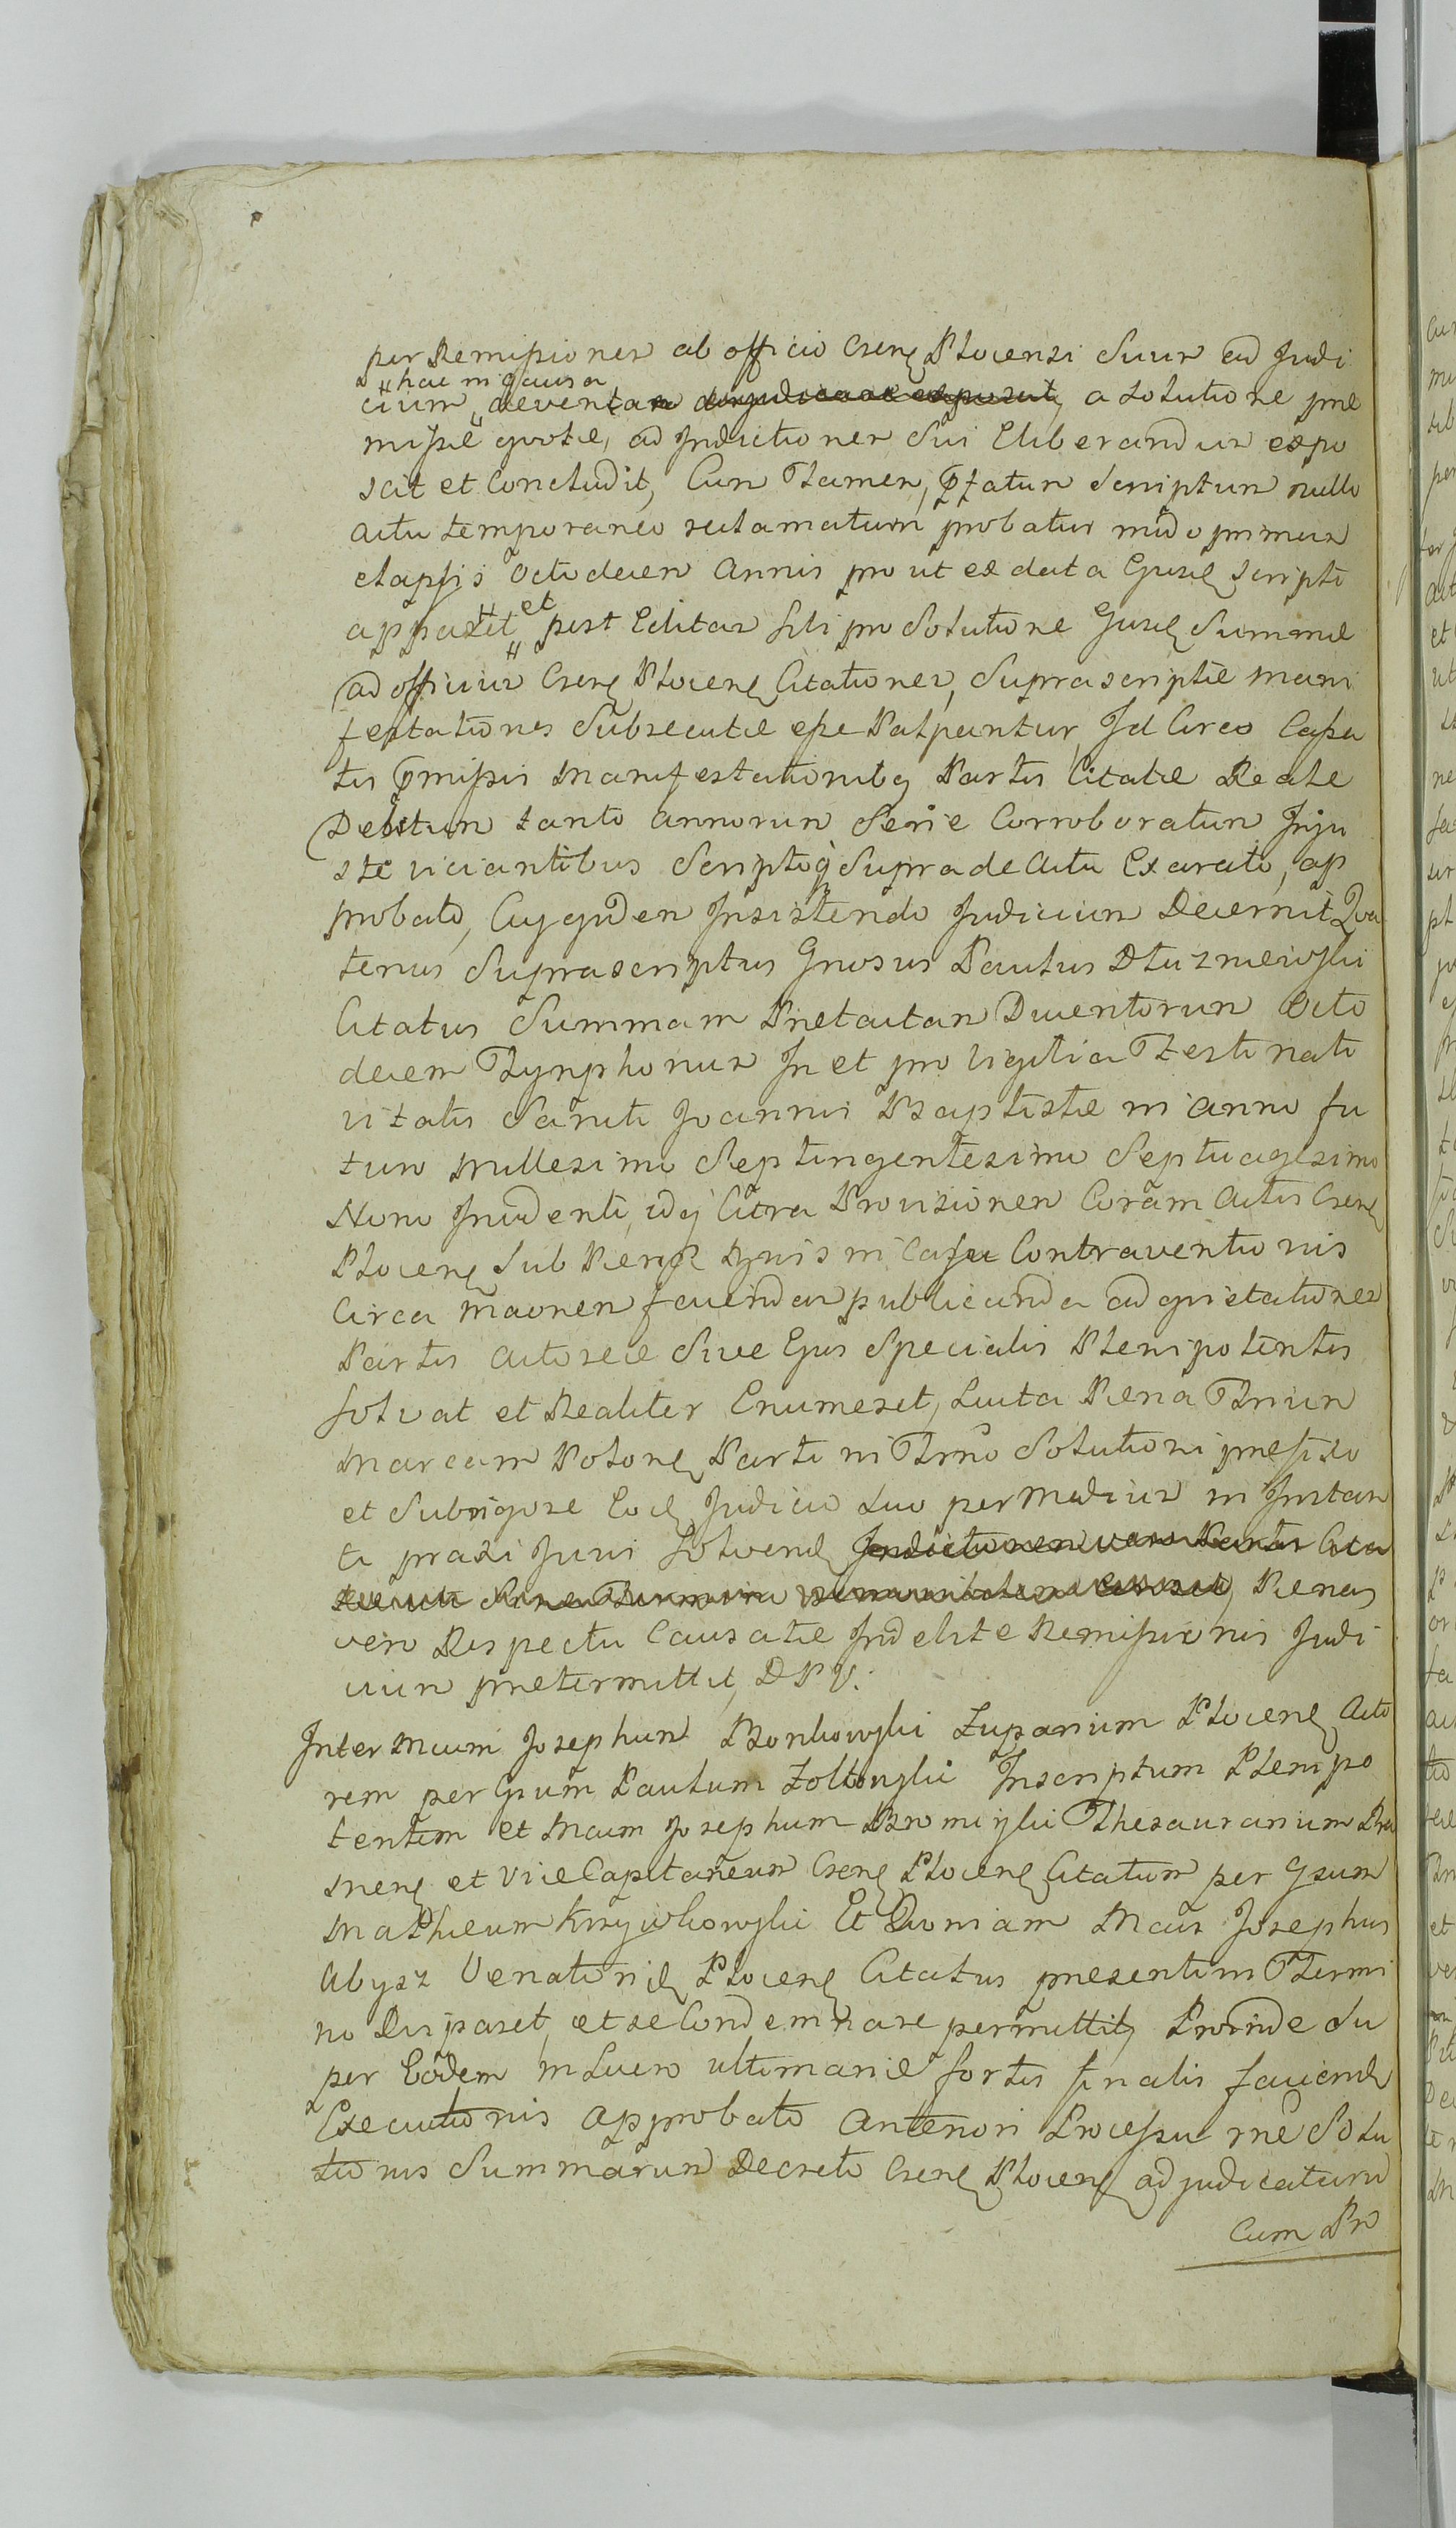 per Remissionem ab officio Csrens Plocensi Suum ad Judi
hac in causa
cium devent a Solutione prae
missae quotae, ad Indictionem Sui Eliberandum expo
scit et Concludit, Cum Tamen, Ptatum Scriptum nullo
actu temporaneo reclamatum probatur modo primum
elapsis Octodecem Annis prout ex data Ejusd Scripti
apparet et post Editas sibi pro Solutione Ejusd Summae
ad officium Csrens Plocens Citationes, Suprascriptae mani
festationes Subsecutae esse Palpantur, Id Circo Cassa
tis Pmissis Manifestationibq Partis Citatae Reale
Debitum tanto annorum Serie Corroboratum Inju
ste viciantibus Scriptoq Supra de Actu Exarato, ap
probato, Cuj quidem Insistendo Judicium Decernit Qua
tenus Suprascriptus Gnosus Paulus Dłuzniewski
Citatus Summam Praetactam Ducentorum Octo
decem Tynphonum In et pro Vigilia Festi nati
vitatis Sancti Joannis Baptistae in anno fu
turo Millesimo Septingentesimo Septuagesimo
Nono Incidenti, idq Citra Provisionem Coram Actis Csrens
Plocens Sub Paenis in Casu Contraventionis
Circa faciendam publicanda ad quietationem
Partis Actoreae Sive Ejus Specialis Plenipotentis
Solvat et Realiter Enumeret, Luita Paena Trium
Marcarum Polons Parti in Trno Solutioni praefixo
et Sub rigore Eod Judicio Luo per Medium in Instan
ti praxi Juris Solvend Paenas
vero Respectu Causatae Indebite Remissionis Judi
cium praetermittit, D P V.
Inter Mcum Josephum Bonkowski Zuparium Plocens Acto
rem per Gsum Paulum Zołtowski Inscriptum Plenipo
tentem et Mcum Josephum Bromirski Thesaurarium
snens et Vice Capitaneum Csrens Plocens Citatum per Gsum
Mathaeum Krzywkowski Et Quoniam Mcus Josephus
Abysz Venatorid Plocens Citatus praesenti in Termi
no Disparet, et se Condemnare permittit, Proinde Su
per Eodem in Lucro ultimariae sortis finalis faciend
Executionis Approbato Anteriori Processu rne Solu
tionis Summarum Decreto Csrens Plocens adjudicatarum
Cum Pro